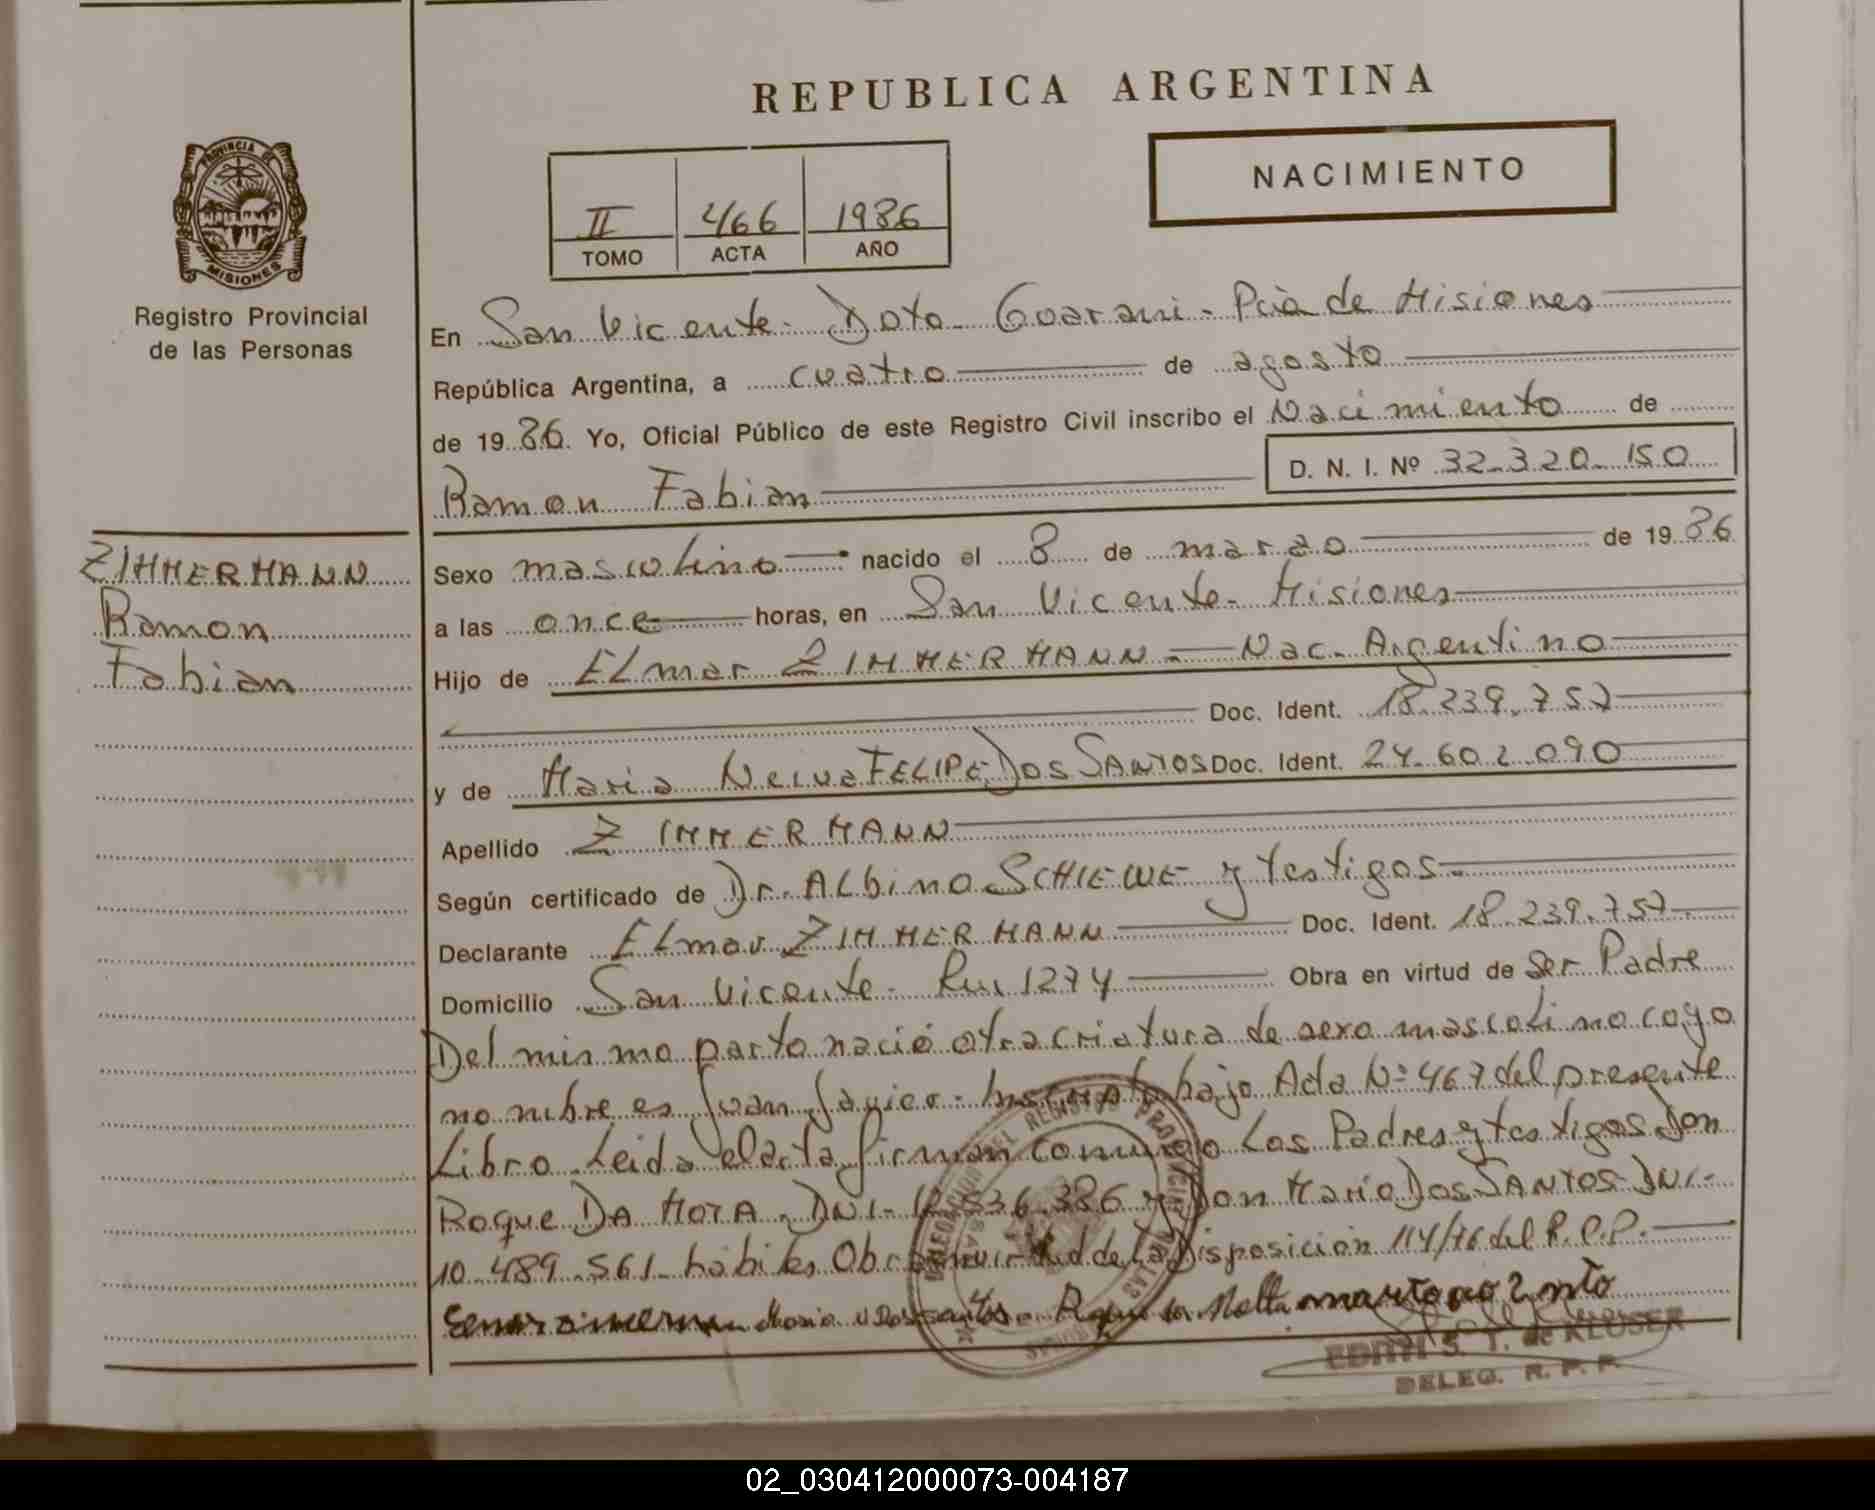 REPUBLICA ARGENTINA
PROVINCIA DE
MISIONES
Registro Provincial
de las Personas
NACIMIENTO
II 466 1986
TOMO ACTA AÑO
En San Vicente - Dpto - Guarani - Pcia de Misiones
República Argentina, a cuatro de agosto
de 1986. Yo, Oficial Público de este Registro Civil inscribo el Nacimiento de
Ramon Fabian
D. N. I. Nº 32-320-150
ZIMMERMANN
Ramon
Fabian
Sexo masculino nacido el 8 de marzo de 1986
a las once horas, en San Vicente - Misiones
Hijo de ELmar ZIMMERMANN - Nac. Argentino
Doc. Ident. 18.239.757
y de Maria Nelva FELIPE Dos SANTOS Doc. Ident. 24.602.090
Apellido ZIMMERMANN
Según certificado de Dr. ALbino SCHIEWE y testigos
Declarante ELmar ZIMMERMANN Doc. Ident. 18.239.757
Domicilio San Vicente - Km 1274 Obra en virtud de Ser Padre
Del mismo parto nació otra criatura de sexo masculino cuyo
nombre es Juan Javier - bajo Acta Nº 467 del presente
Libro - Leida el acta firman conmigo Los Padres y testigos Don
Roque DA MOTA - DNI - 636.386 y Don Mario Dos SANTOS - DNI -
10-489-561 - habiles Obra en virtud de la Disposición 114/76 del R.P.P.
Maria N Dos santos Roque da Motta
EDITH S. T. de KLUSER
DELEG. R. P. P.
02_030412000073-004187